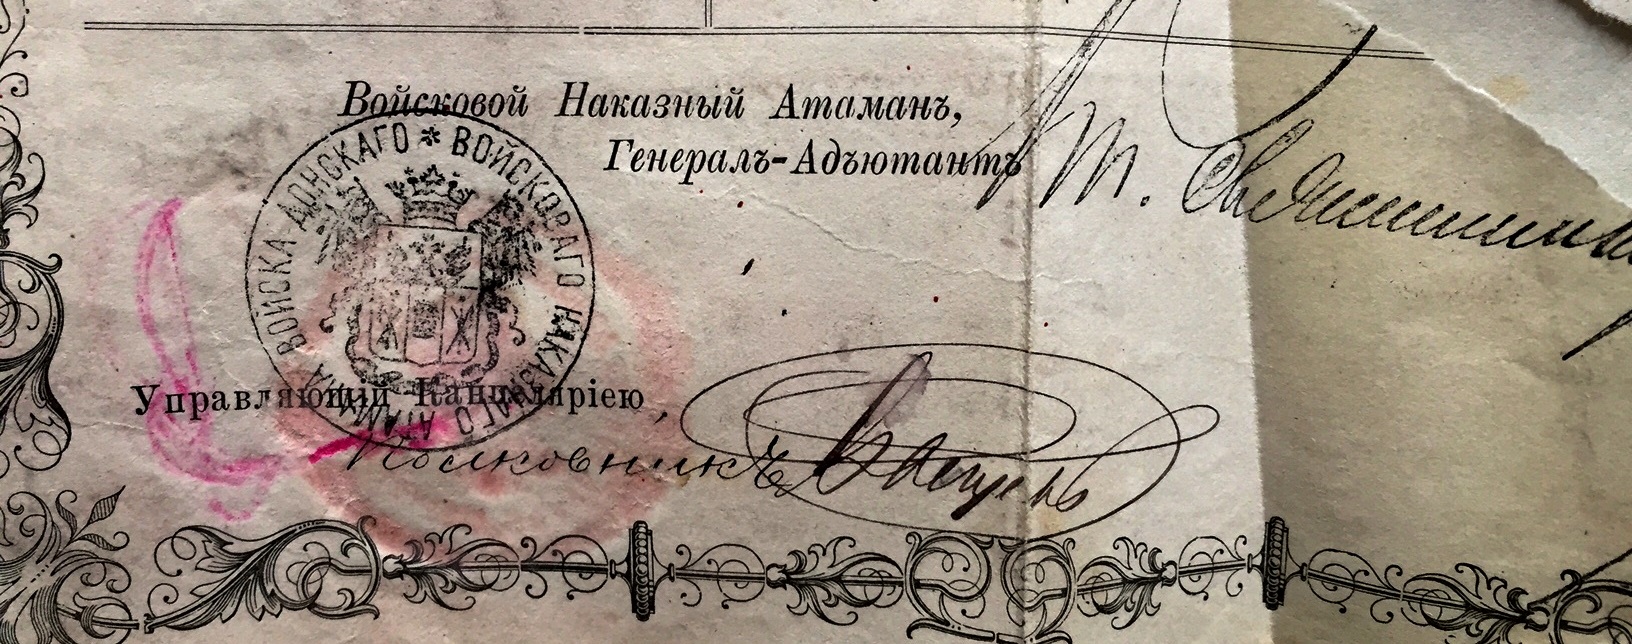 Войсковой Наказный Атаманъ,
Генералъ-Адъютантъ
ВОЙСКА ДОНСКАГО * ВОЙСКОВАГО НАКАЗНАГО АТАМАНА
Управляющій Канцеляріею,
Полковникъ